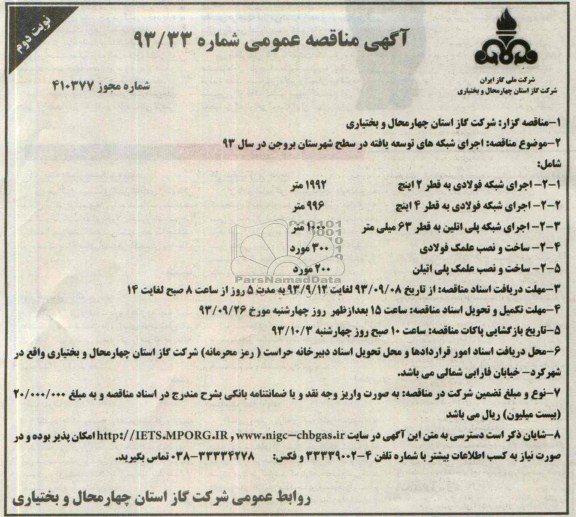 نوبت دوم
آگهی مناقصه عمومی شماره ۹۳/۳۳
شرکت ملی گاز ایران
شرکت گاز استان چهارمحال و بختیاری
شماره مجوز ۴۱۰۳۷۷
۱-مناقصه گزار: شرکت گاز استان چهارمحال و بختیاری
۲-موضوع مناقصه: اجرای شبکه های توسعه یافته در سطح شهرستان بروجن در سال ۹۳
شامل:
۲-۱- اجرای شبکه فولادی به قطر ۲ اینچ ۱۹۹۲ متر
۲-۲- اجرای شبکه فولادی به قطر ۴ اینچ ۹۹۶ متر
۲-۳- اجرای شبکه پلی اتلین به قطر ۶۳ میلی متر ۱۰۰۰ متر
۲-۴- ساخت و نصب علمک فولادی ۳۰۰ مورد
۲-۵- ساخت و نصب علمک پلی اتیلن ۲۰۰ مورد
ParsNamadData
۳-مهلت دریافت اسناد مناقصه: از تاریخ ۹۳/۰۹/۰۸ لغایت ۹۳/۹/۱۲ به مدت ۵ روز از ساعت ۸ صبح لغایت ۱۴
۴-مهلت تکمیل و تحویل اسناد مناقصه: ساعت ۱۵ بعدازظهر روز چهارشنبه مورخ ۹۳/۰۹/۲۶
۵-تاریخ بازگشایی پاکات مناقصه: ساعت ۱۰ صبح روز چهارشنبه ۹۳/۱۰/۳
۶-محل دریافت اسناد امور قراردادها و محل تحویل اسناد دبیرخانه حراست ( رمز محرمانه) شرکت گاز استان چهارمحال و بختیاری واقع در
شهرکرد- خیابان فارابی شمالی می باشد.
۷-نوع و مبلغ تضمین شرکت در مناقصه: به صورت واریز وجه نقد و یا ضمانتنامه بانکی بشرح مندرج در اسناد مناقصه و به مبلغ ۲۰/۰۰۰/۰۰۰
(بیست میلیون) ریال می باشد
۸-شایان ذکر است دسترسی به متن این آگهی در سایت http://IETS.MPORG.IR , www.nigc-chbgas.ir امکان پذیر بوده و در
صورت نیاز به کسب اطلاعات بیشتر با شماره تلفن ۴-۳۳۳۳۹۰۰۲ و فکس: ۳۳۳۳۴۲۷۸-۰۳۸ تماس بگیرید.
روابط عمومی شرکت گاز استان چهارمحال و بختیاری